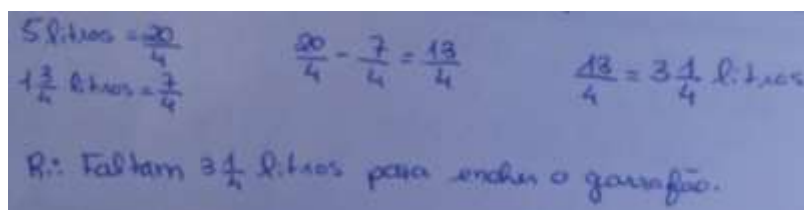 5 litros = 20/4
1 3/4 litros = 7/4
20/4 - 7/4 = 13/4
13/4 = 3 1/4 litros
R.: Faltam 3 1/4 litros para encher o garrafão.